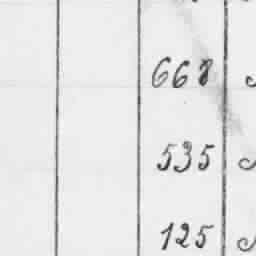 668
535
125